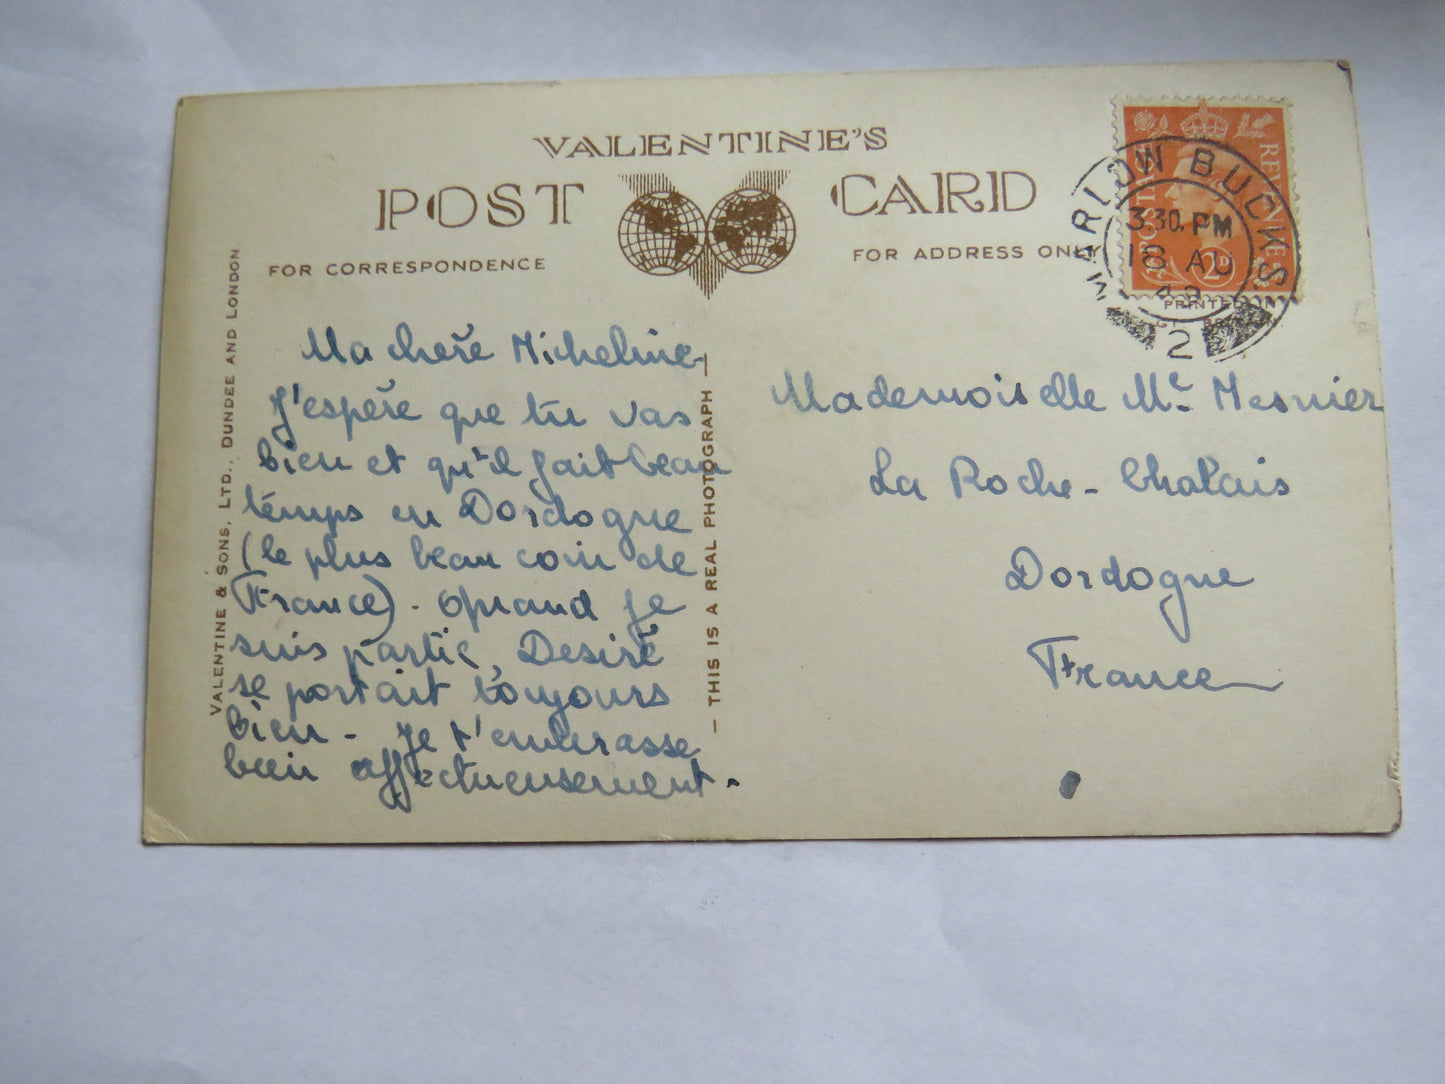 VALENTINE'S
POST CARD
FOR CORRESPONDENCE
FOR ADDRESS ONLY
POSTAGE REVENUE
2D
MARLOW BUCKS.
3.30. PM
18 AU
2
PRINTED IN
VALENTINE & SONS, LTD., DUNDEE AND LONDON.
— THIS IS A REAL PHOTOGRAPH —
Ma chère Micheline
J'espère que tu vas
bien et qu'il fait beau
temps en Dordogne
(le plus beau coin de
France). Quand je
suis partie, Desiré
se portait toujours
bien - Je t'embrasse
bien affectueusement.
Mademoiselle Me Mesnier
La Roche-Chalais
Dordogne
France